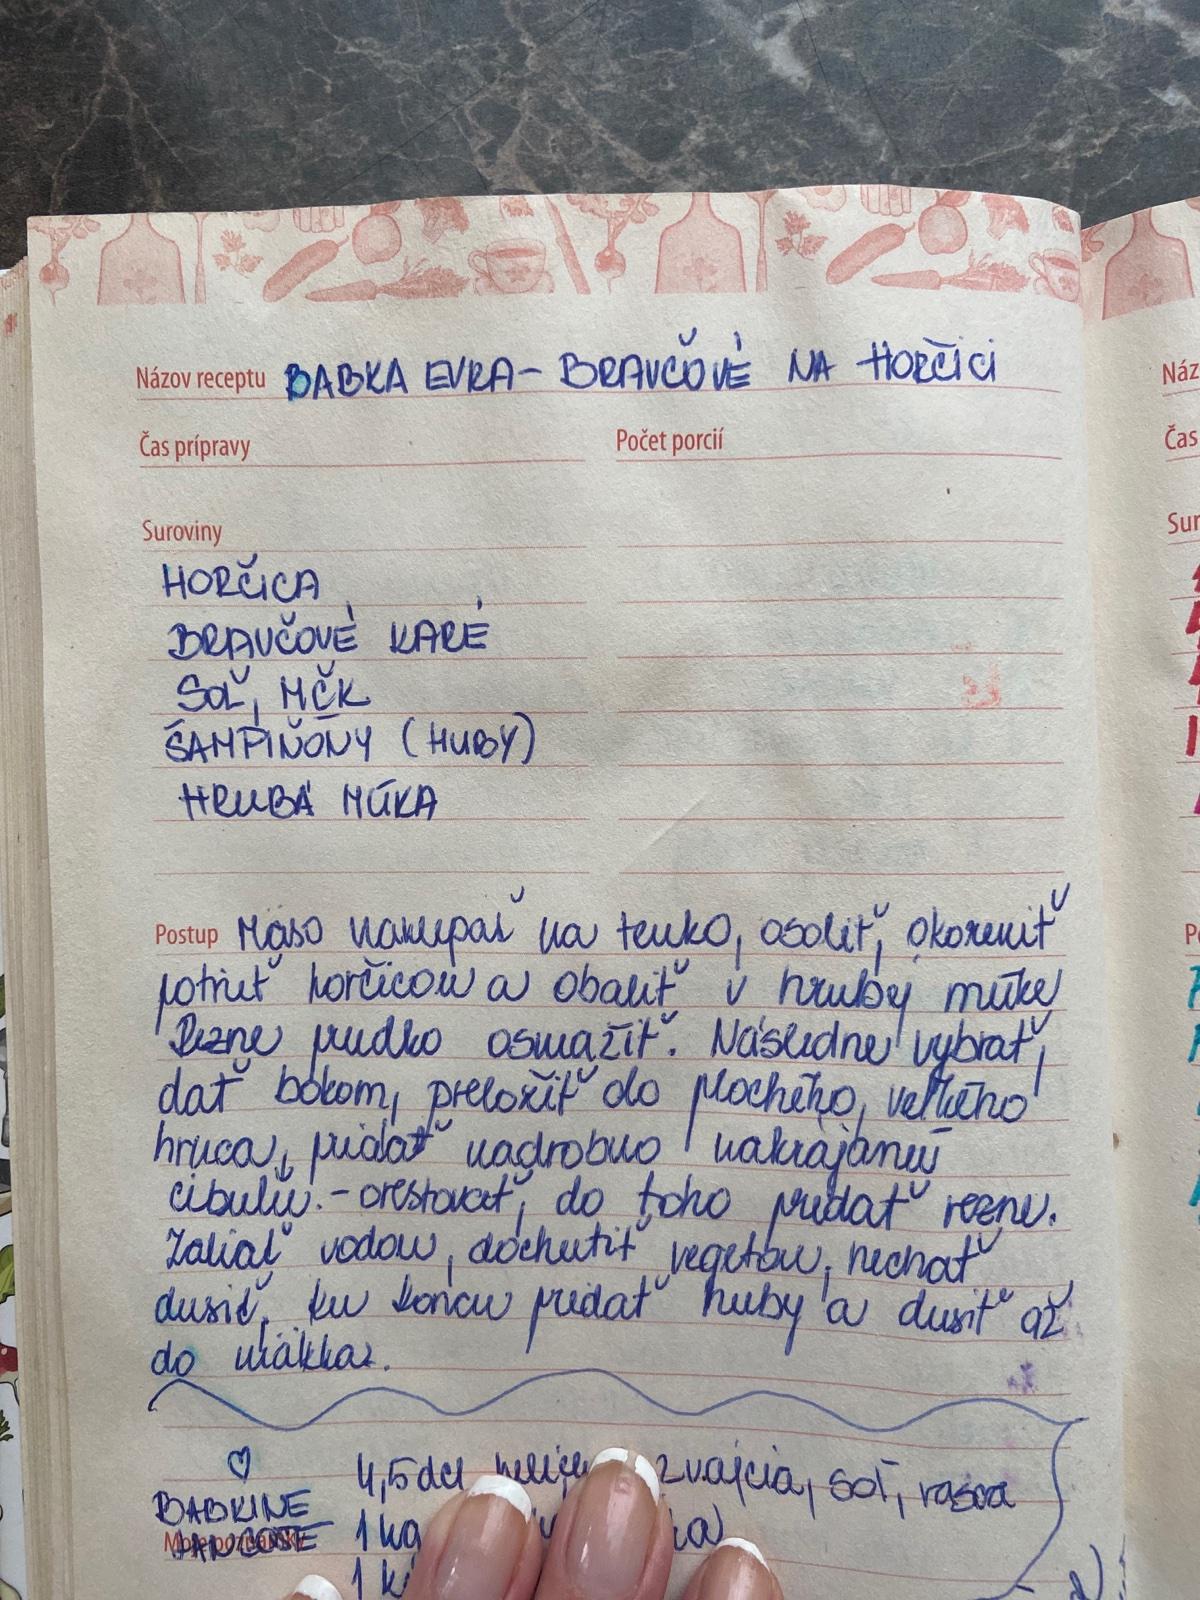 Názov receptu BABKA EVRA - BRAVČOVÉ NA HORČICI
Čas prípravy Počet porcií
Suroviny
HORČICA
BRAVČOVÉ KARÉ
SOĽ, MČK
ŠAMPIŇÓNY (HUBY)
HRUBÁ MÚKA
Postup Mäso naklepať na tenko, osoliť, okoreniť
potrieť horčicou a obaliť v hrubej múke
Rezne prudko osmažiť. Následne vybrať,
dať bokom, preložiť do plochého, veľkého
hrnca, pridať nadrobno nakrájanú
cibuľu. - orestovať, do toho pridať rezne.
Zaliať vodou, dochutiť vegetou, nechať
dusiť, ku koncu pridať huby a dusiť až
do mäkka.
4,5 dcl zvajcia, soľ, rasca
BABKINE
1 kg
LANGOŠE
1
Náz
Čas
Sur